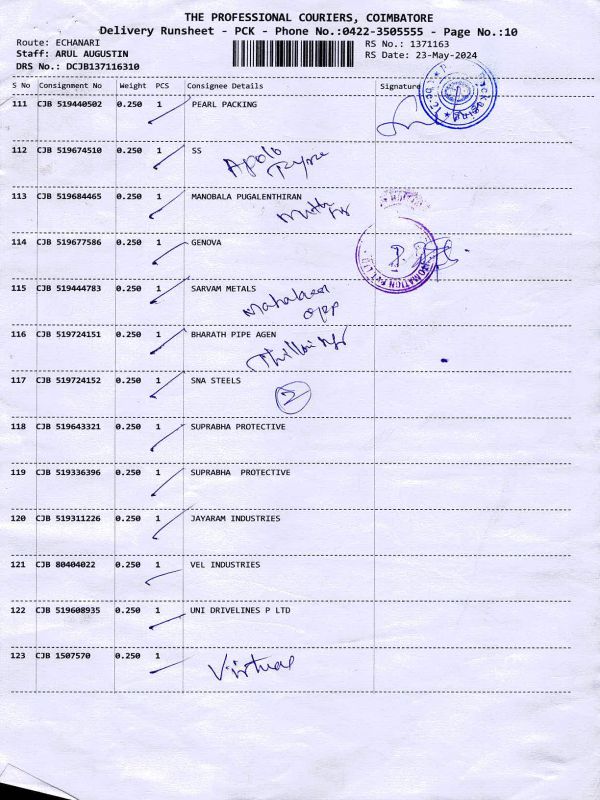 THE PROFESSIONAL COURIERS, COIMBATORE
Delivery Runsheet - PCK - Phone No.:0422-3505555 - Page No.:10
Route: ECHANARI RS No.: 1371163
Staff: ARUL AUGUSTIN RS Date: 23-May-2024
DRS No.: DCJB137116310
S No Consignment No Weight PCS Consignee Details Signature
111 CJB 519440502 0.250 1 PEARL PACKING
112 CJB 519674510 0.250 1 SS
Apolo
113 CJB 519684465 0.250 1 MANOBALA PUGALENTHIRAN
114 CJB 519677586 0.250 1 GENOVA
115 CJB 519444783 0.250 1 SARVAM METALS
opp
116 CJB 519724151 0.250 1 BHARATH PIPE AGEN
117 CJB 519724152 0.250 1 SNA STEELS
2
118 CJB 519643321 0.250 1 SUPRABHA PROTECTIVE
119 CJB 519336396 0.250 1 SUPRABHA PROTECTIVE
120 CJB 519311226 0.250 1 JAYARAM INDUSTRIES
121 CJB 80404022 0.250 1 VEL INDUSTRIES
122 CJB 519608935 0.250 1 UNI DRIVELINES P LTD
123 CJB 1507570 0.250 1
Virtual